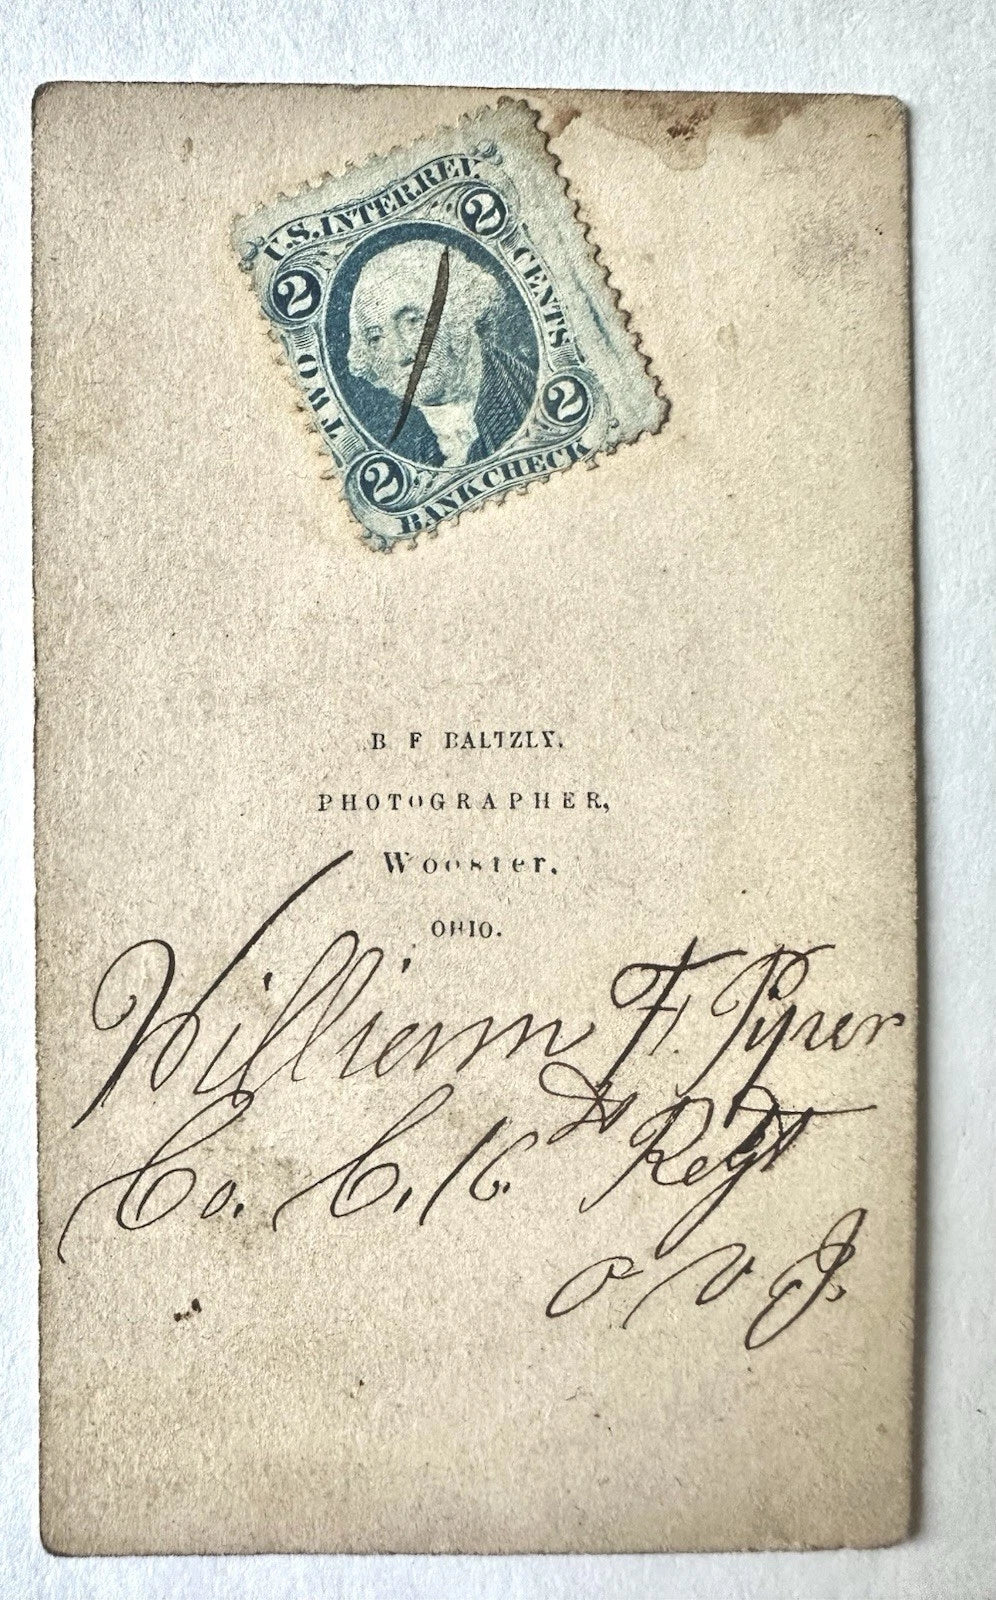 U.S. INTER. REV.
2 2
TWO CENTS
2 2
BANK CHECK
B F BALTZLY,
PHOTOGRAPHER,
Wooster,
OHIO.
William F. Pyper
Co. C. 16. Regt
O V I.